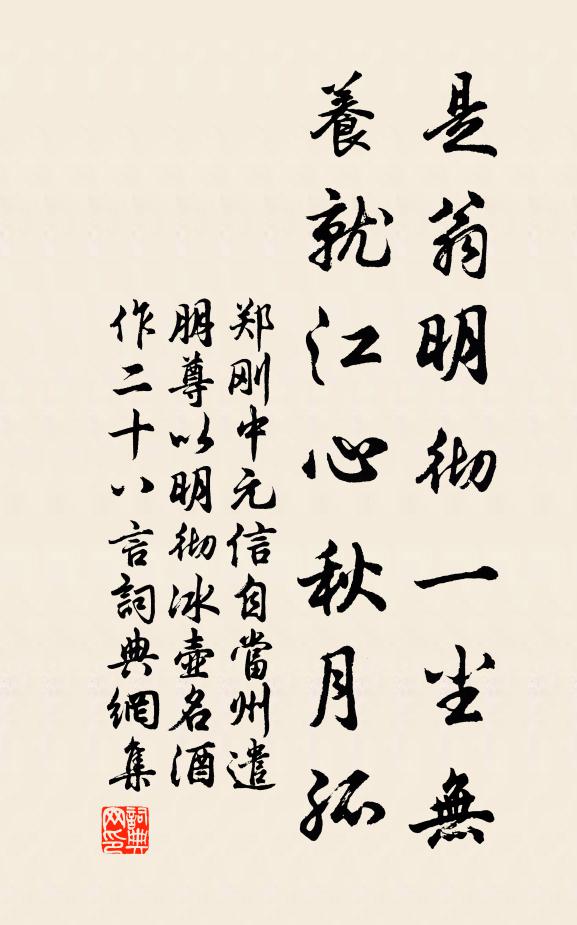 是翁明彻一尘無
養就江心秋月孤
郑刚中元信自當州遣
朋尊以明彻冰壶名酒
作二十八言詞典網集
詞典网印